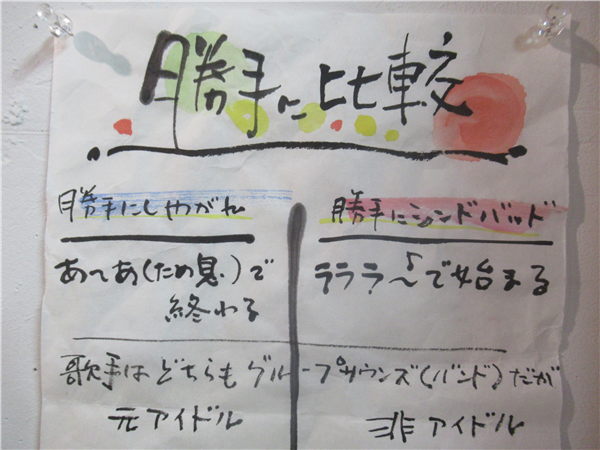 勝手に比較
勝手にしやがれ
勝手にシンドバッド
あ〜あ(ため息)で
終わる
ラララ〜♪で始まる
歌手はどちらもグループサウンズ(バンド)だが
元アイドル
非アイドル